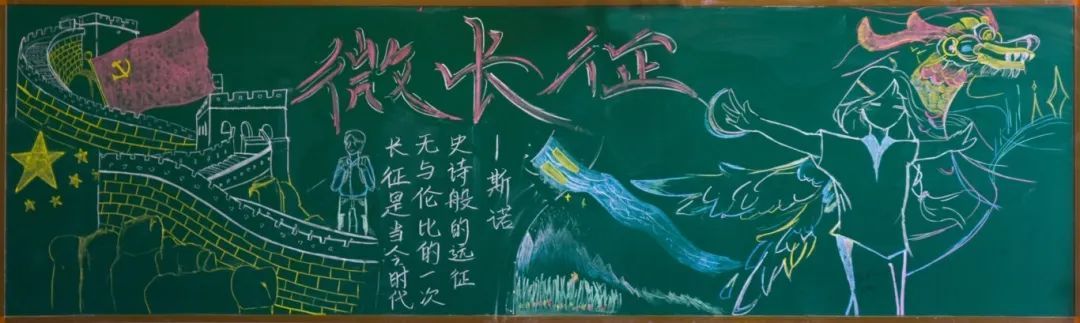 微长征
长征是当今时代
无与伦比的一次
史诗般的远征
—斯诺